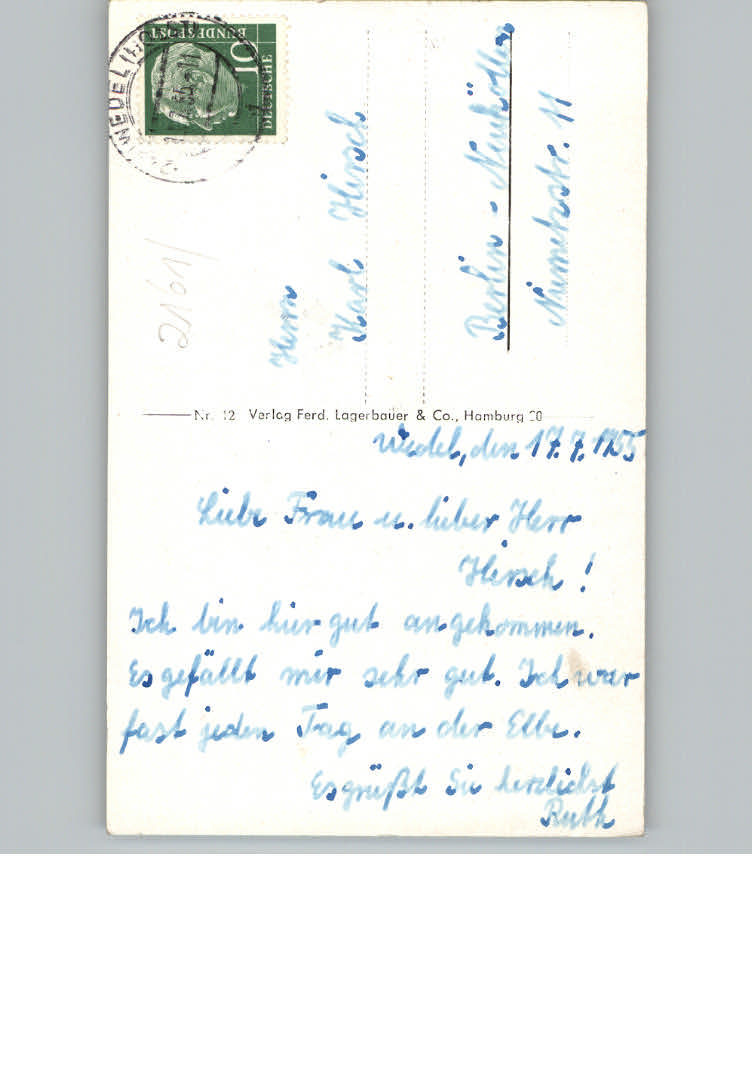 WEDEL (HOLST)
DEUTSCHE
BUNDESPOST
10
2161/
Herrn
Karl Hirsch
Berlin - Neukölln
Niemetzstr. 11
Nr. 12 Verlag Ferd. Lagerbauer & Co., Hamburg 20
Wedel, den 17.7.1955
Liebe Frau u. lieber Herr
Hirsch!
Ich bin hier gut angekommen.
Es gefällt mir sehr gut. Ich war
fast jeden Tag an der Elbe.
Es grüßt Sie herzlichst
Ruth